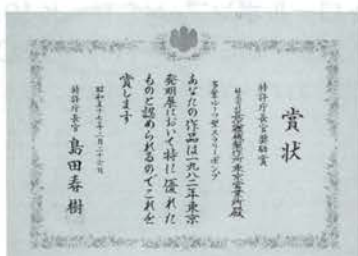 賞状
特許庁長官奨励賞
東京営業所殿
あなたの作品は一九八二年東京
発明展において特に優れた
ものと認められるのでこれを
賞します
昭和五十七年二月二十六日
特許庁長官 島田春樹